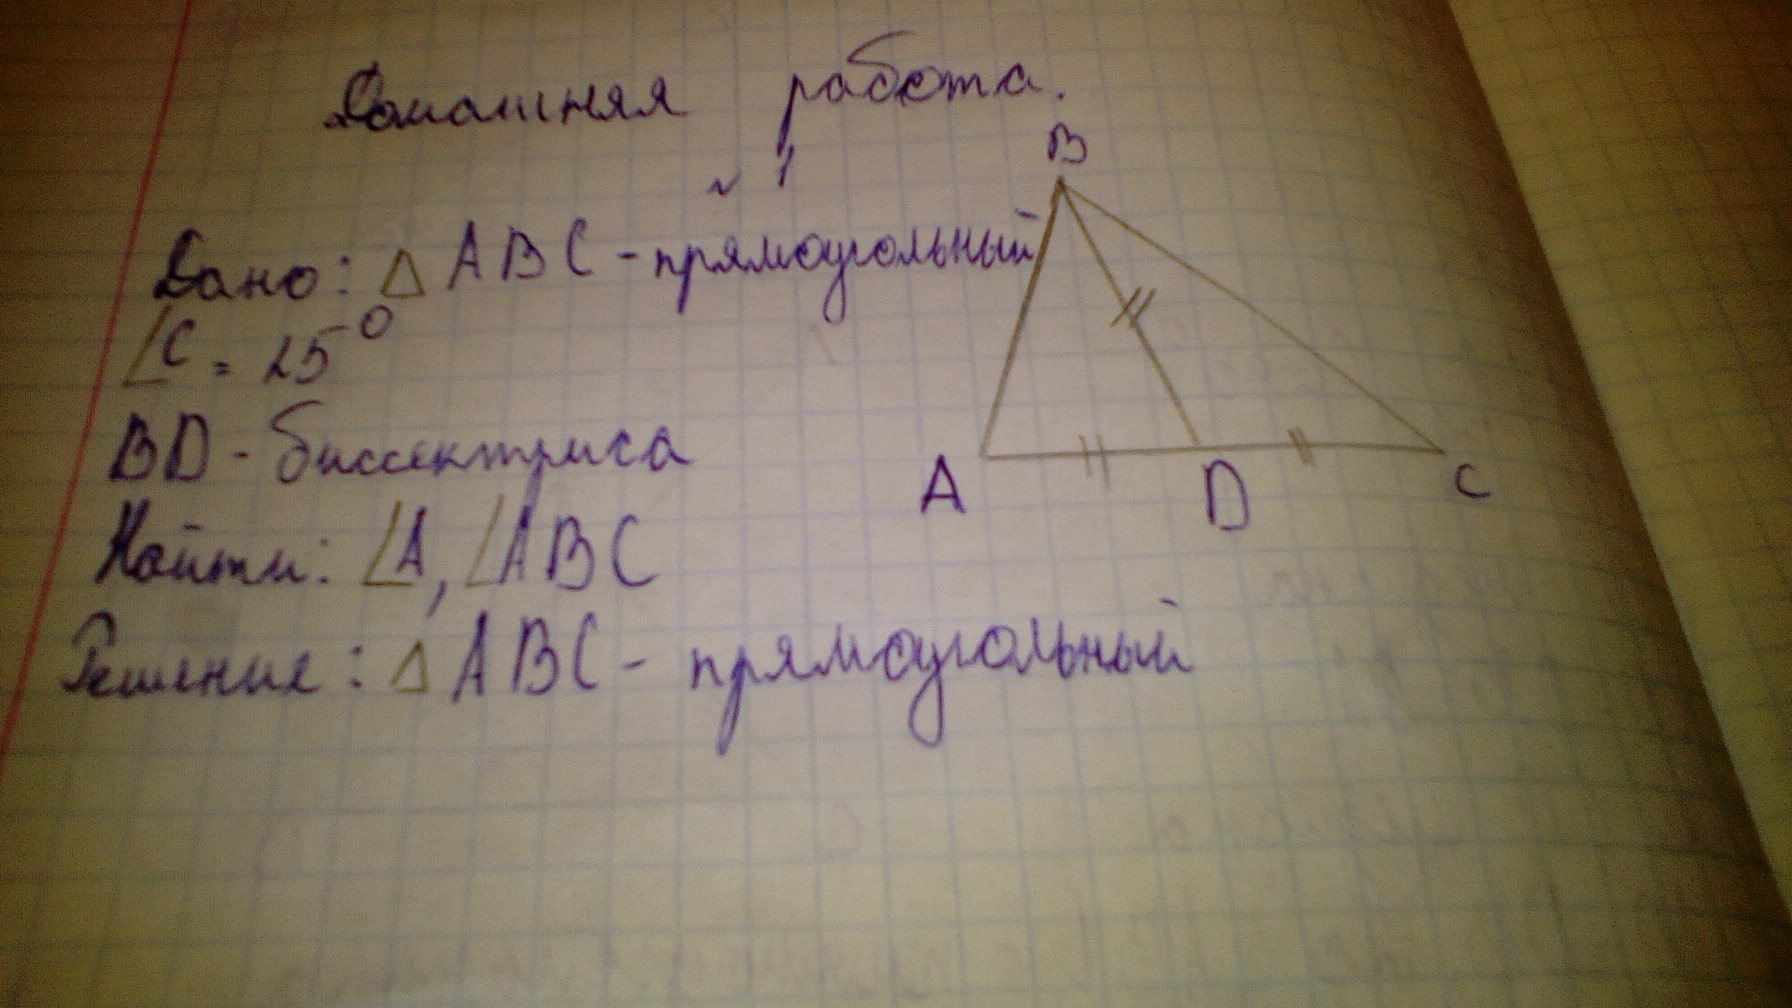 Домашняя работа.
№ 1
Дано: △ ABC - прямоугольный
∠C = 25°
BD - биссектриса
Найти: ∠A, ∠ABC
Решение: △ ABC - прямоугольный
B
A
D
C